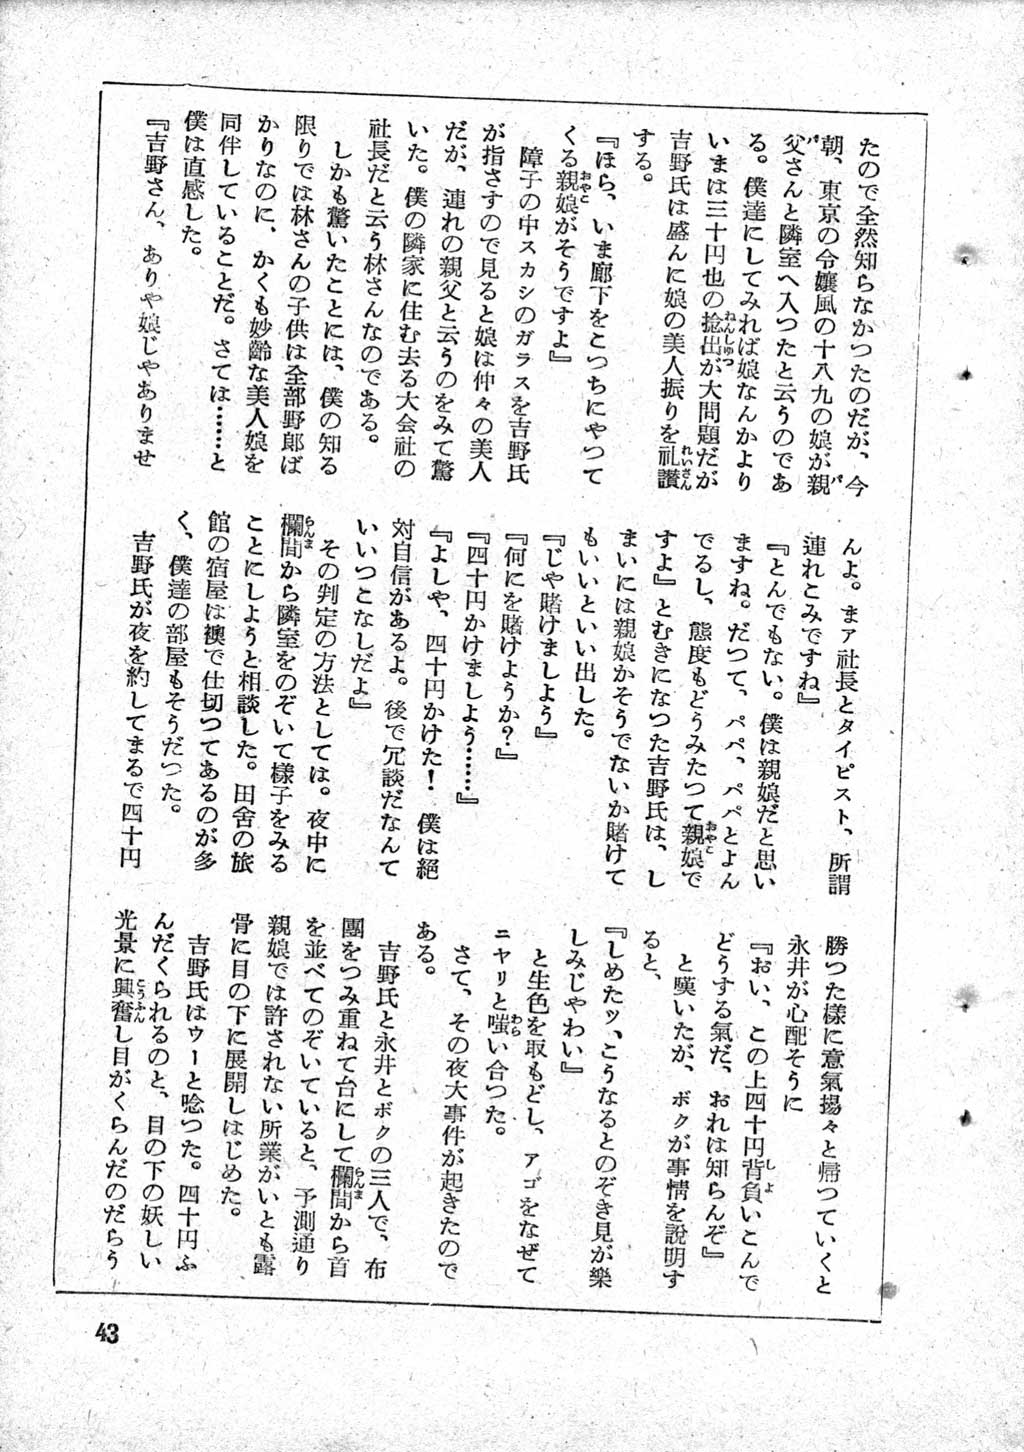 たので全然知らなかつたのだが、今
朝、東京の令嬢風の十八九の娘が親
父さんと隣室へ入つたと云うのであ
る。僕達にしてみれば娘なんかより
いまは三十円也の捻出が大問題だが
吉野氏は盛んに娘の美人振りを礼讃
する。
『ほら、いま廊下をこつちにやつて
くる親娘がそうですよ』
障子の中スカシのガラスを吉野氏
が指さすので見ると娘は仲々の美人
だが、連れの親父と云うのをみて驚
いた。僕の隣家に住む去る大会社の
社長だと云う林さんなのである。
しかも驚いたことには、僕の知る
限りでは林さんの子供は全部野郎ば
かりなのに、かくも妙齢な美人娘を
同伴していることだ。さては………と
僕は直感した。
『吉野さん、ありや娘じやありませ
んよ。まア社長とタイピスト、所謂
連れこみですね』
『とんでもない。僕は親娘だと思い
ますね。だつて、パパ、パパとよん
でるし、態度もどうみたつて親娘で
すよ』とむきになつた吉野氏は、し
まいには親娘かそうでないか賭けて
もいいといい出した。
『じや賭けましよう』
『何にを賭けようか？』
『四十円かけましよう……』
『よしや、四十円かけた！　僕は絶
対自信があるよ。後で冗談だなんて
いいつこなしだよ』
その判定の方法としては。夜中に
欄間から隣室をのぞいて様子をみる
ことにしようと相談した。田舎の旅
館の宿屋は襖で仕切つてあるのが多
く、僕達の部屋もそうだつた。
吉野氏が夜を約してまるで四十円
勝つた様に意氣揚々と帰つていくと
永井が心配そうに
『おい、この上四十円背負いこんで
どうする氣だ、おれは知らんぞ』
と嘆いたが、ボクが事情を説明す
ると、
『しめたッ、こうなるとのぞき見が樂
しみじやわい』
と生色を取もどし、アゴをなぜて
ニヤリと嗤い合つた。
さて、その夜大事件が起きたので
ある。
吉野氏と永井とボクの三人で、布
團をつみ重ねて台にして欄間から首
を並べてのぞいていると、予測通り
親娘では許されない所業がいとも露
骨に目の下に展開しはじめた。
吉野氏はウーと唸つた。四十円ふ
んだくられるのと、目の下の妖しい
光景に興奮し目がくらんだのだらう
43